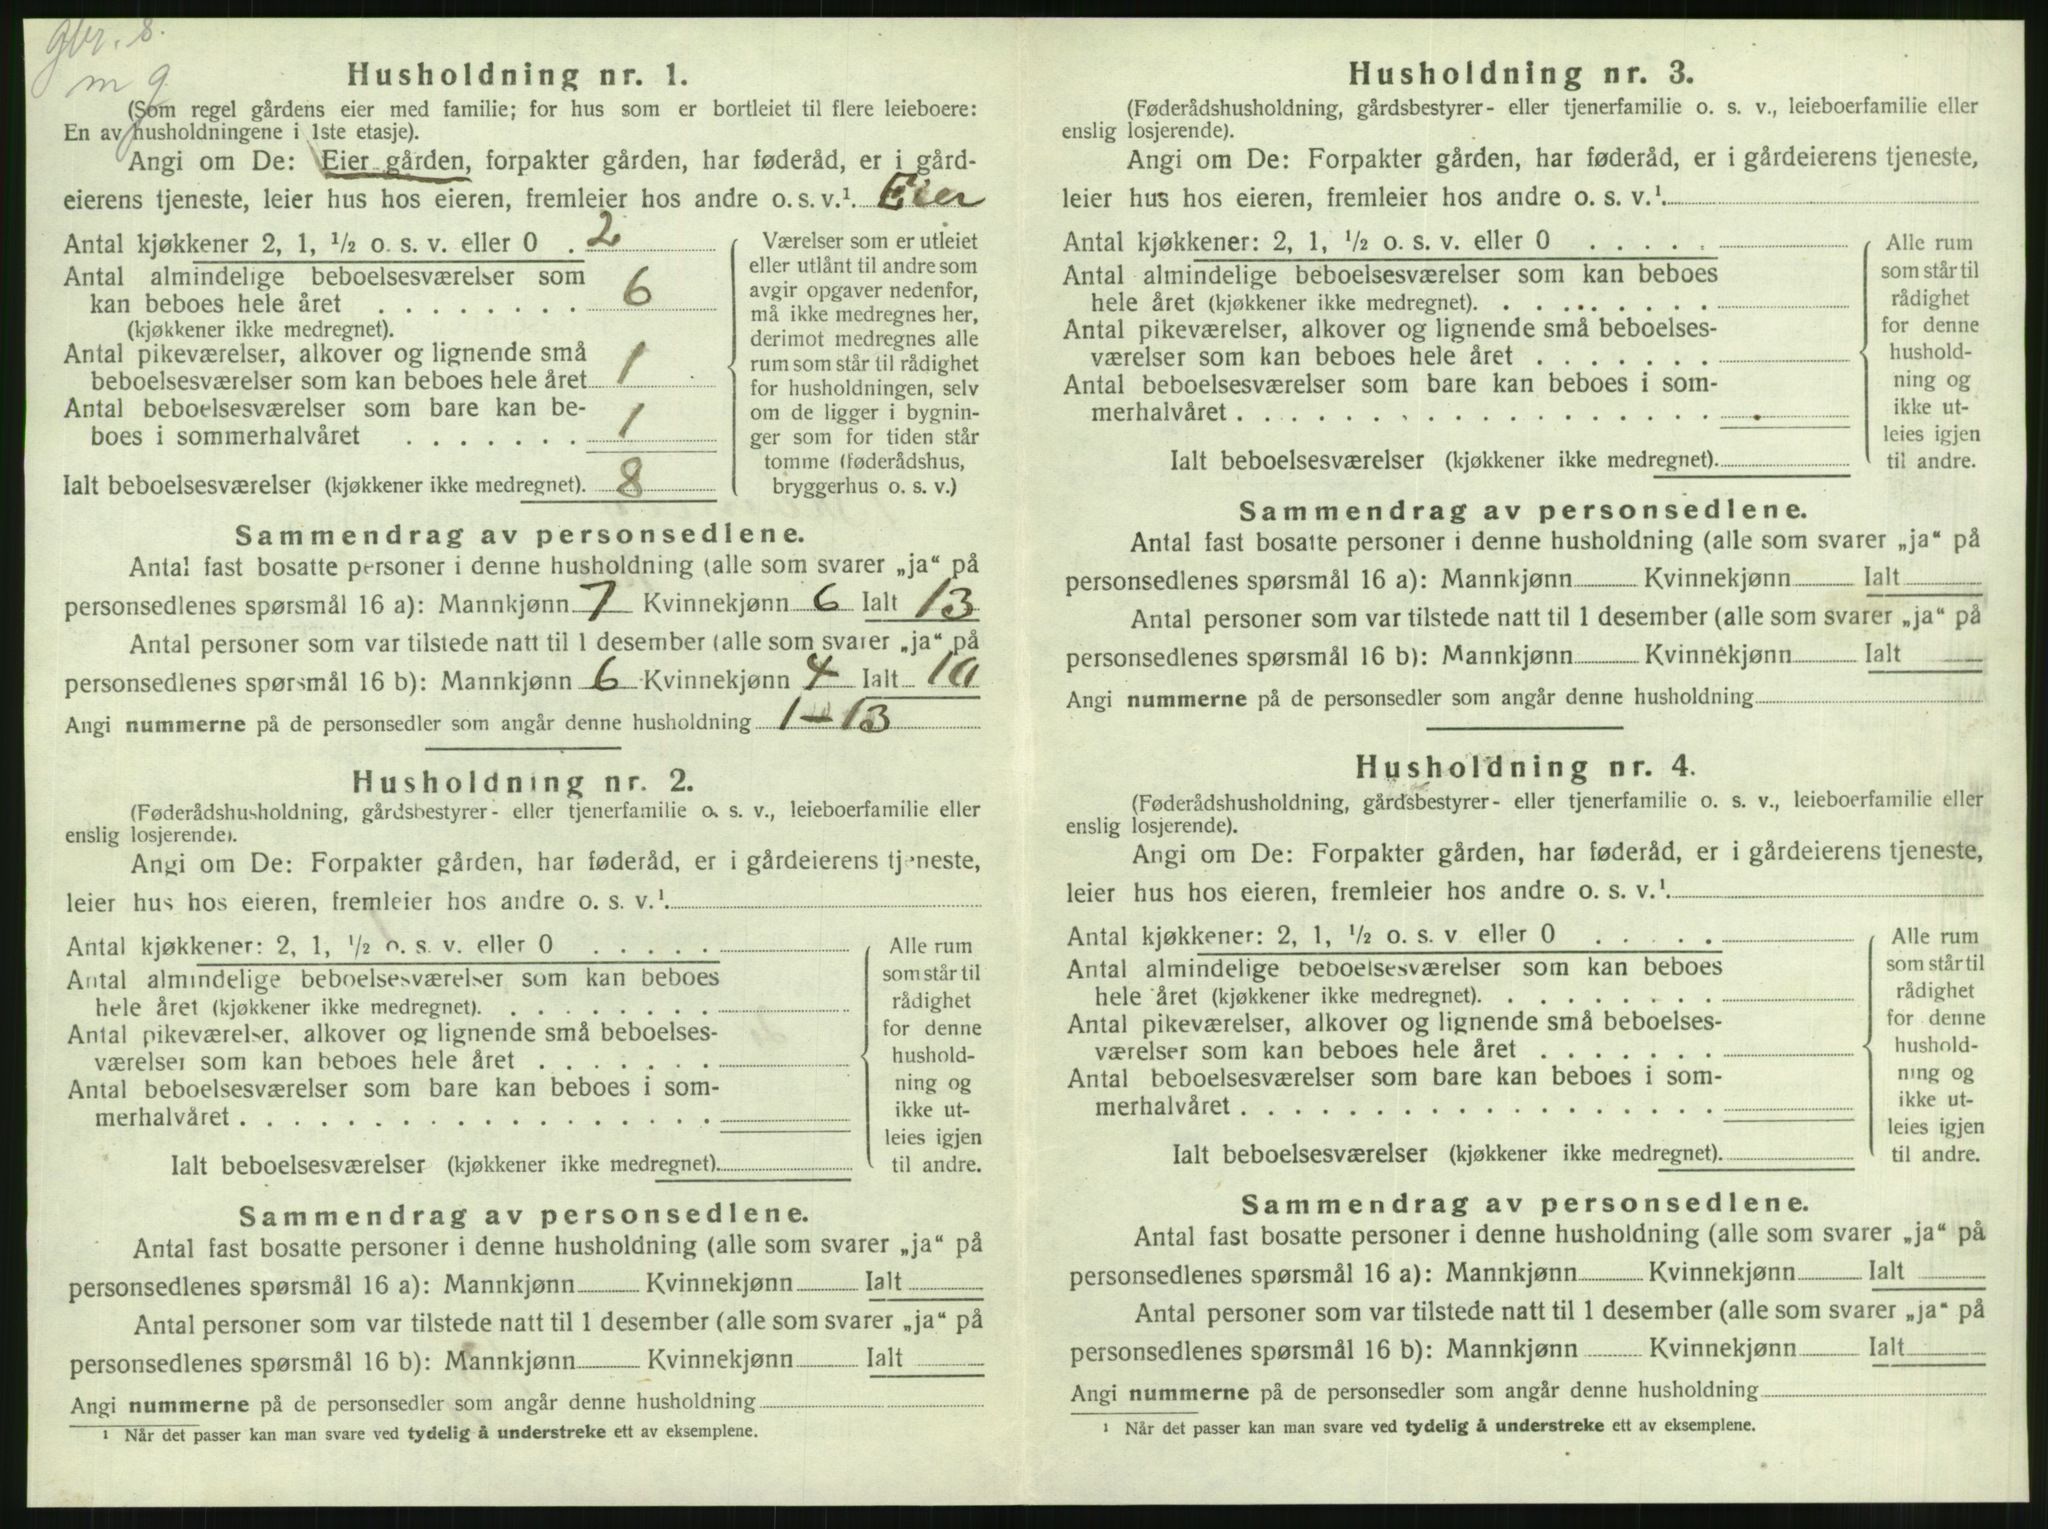 gbr. 8.
m g
Husholdning nr. 1.
(Som regel gårdens eier med familie; for hus som er bortleiet til flere leieboere:
En av husholdningene i 1ste etasje).
Angi om De: Eier gården, forpakter gården, har føderåd, er i gård-
eierens tjeneste, leier hus hos eieren, fremleier hos andre o. s. v.¹. Eier
Antal kjøkkener 2, 1, ½ o. s. v. eller 0 . 2
Antal almindelige beboelsesværelser som
kan beboes hele året . . . . . . . . 6
(kjøkkener ikke medregnet).
Antal pikeværelser, alkover og lignende små
beboelsesværelser som kan beboes hele året 1
Antal beboelsesværelser som bare kan be-
boes i sommerhalvåret . . . . . . . 1
Ialt beboelsesværelser (kjøkkener ikke medregnet). 8
Værelser som er utleiet
eller utlånt til andre som
avgir opgaver nedenfor,
må ikke medregnes her,
derimot medregnes alle
rum som står til rådighet
for husholdningen, selv
om de ligger i bygnin-
ger som for tiden står
tomme (føderådshus,
bryggerhus o. s. v.)
Sammendrag av personsedlene.
Antal fast bosatte personer i denne husholdning (alle som svarer „ja“ på
personsedlenes spørsmål 16 a): Mannkjønn 7 Kvinnekjønn 6 Ialt 13
Antal personer som var tilstede natt til 1 desember (alle som svarer „ja“ på
personsedlenes spørsmål 16 b): Mannkjønn 6 Kvinnekjønn 4 Ialt 10
Angi nummerne på de personsedler som angår denne husholdning 1-13
Husholdning nr. 2.
(Føderådshusholdning, gårdsbestyrer- eller tjenerfamilie o. s. v., leieboerfamilie eller
enslig losjerende).
Angi om De: Forpakter gården, har føderåd, er i gårdeierens tjeneste,
leier hus hos eieren, fremleier hos andre o. s. v.¹.
Antal kjøkkener: 2, 1, ½ o. s. v. eller 0 . . . . .
Antal almindelige beboelsesværelser som kan beboes
hele året (kjøkkener ikke medregnet). . . . . . . . .
Antal pikeværelser, alkover og lignende små beboelses-
værelser som kan beboes hele året . . . . . . .
Antal beboelsesværelser som bare kan beboes i som-
merhalvåret . . . . . . . . . . . . . . . . . .
Ialt beboelsesværelser (kjøkkener ikke medregnet).
Alle rum
som står til
rådighet
for denne
hushold-
ning og
ikke ut-
leies igjen
til andre.
Sammendrag av personsedlene.
Antal fast bosatte personer i denne husholdning (alle som svarer „ja“ på
personsedlenes spørsmål 16 a): Mannkjønn Kvinnekjønn Ialt
Antal personer som var tilstede natt til 1 desember (alle som svarer „ja“ på
personsedlenes spørsmål 16 b): Mannkjønn Kvinnekjønn Ialt
Angi nummerne på de personsedler som angår denne husholdning
¹ Når det passer kan man svare ved tydelig å understreke ett av eksemplene.
Husholdning nr. 3.
(Føderådshusholdning, gårdsbestyrer- eller tjenerfamilie o. s. v., leieboerfamilie eller
enslig losjerende).
Angi om De: Forpakter gården, har føderåd, er i gårdeierens tjeneste,
leier hus hos eieren, fremleier hos andre o. s. v.¹.
Antal kjøkkener: 2, 1, ½ o. s. v. eller 0 . . . . .
Antal almindelige beboelsesværelser som kan beboes
hele året (kjøkkener ikke medregnet). . . . . . . . .
Antal pikeværelser, alkover og lignende små beboelses-
værelser som kan beboes hele året . . . . . . .
Antal beboelsesværelser som bare kan beboes i som-
merhalvåret . . . . . . . . . . . . . . . . . .
Ialt beboelsesværelser (kjøkkener ikke medregnet).
Alle rum
som står til
rådighet
for denne
hushold-
ning og
ikke ut-
leies igjen
til andre.
Sammendrag av personsedlene.
Antal fast bosatte personer i denne husholdning (alle som svarer „ja“ på
personsedlenes spørsmål 16 a): Mannkjønn Kvinnekjønn Ialt
Antal personer som var tilstede natt til 1 desember (alle som svarer „ja“ på
personsedlenes spørsmål 16 b): Mannkjønn Kvinnekjønn Ialt
Angi nummerne på de personsedler som angår denne husholdning
Husholdning nr. 4.
(Føderådshusholdning, gårdsbestyrer- eller tjenerfamilie o. s. v., leieboerfamilie eller
enslig losjerende).
Angi om De: Forpakter gården, har føderåd, er i gårdeierens tjeneste,
leier hus hos eieren, fremleier hos andre o. s. v.¹.
Antal kjøkkener: 2, 1, ½ o. s. v eller 0 . . . . .
Antal almindelige beboelsesværelser som kan beboes
hele året (kjøkkener ikke medregnet). . . . . . . . .
Antal pikeværelser, alkover og lignende små beboelses-
værelser som kan beboes hele året . . . . . . .
Antal beboelsesværelser som bare kan beboes i som-
merhalvåret . . . . . . . . . . . . . . . . . .
Ialt beboelsesværelser (kjøkkener ikke medregnet).
Alle rum
som står til
rådighet
for denne
hushold-
ning og
ikke ut-
leies igjen
til andre.
Sammendrag av personsedlene.
Antal fast bosatte personer i denne husholdning (alle som svarer „ja“ på
personsedlenes spørsmål 16 a): Mannkjønn Kvinnekjønn Ialt
Antal personer som var tilstede natt til 1 desember (alle som svarer „ja“ på
personsedlenes spørsmål 16 b): Mannkjønn Kvinnekjønn Ialt
Angi nummerne på de personsedler som angår denne husholdning
¹ Når det passer kan man svare ved tydelig å understreke ett av eksemplene.